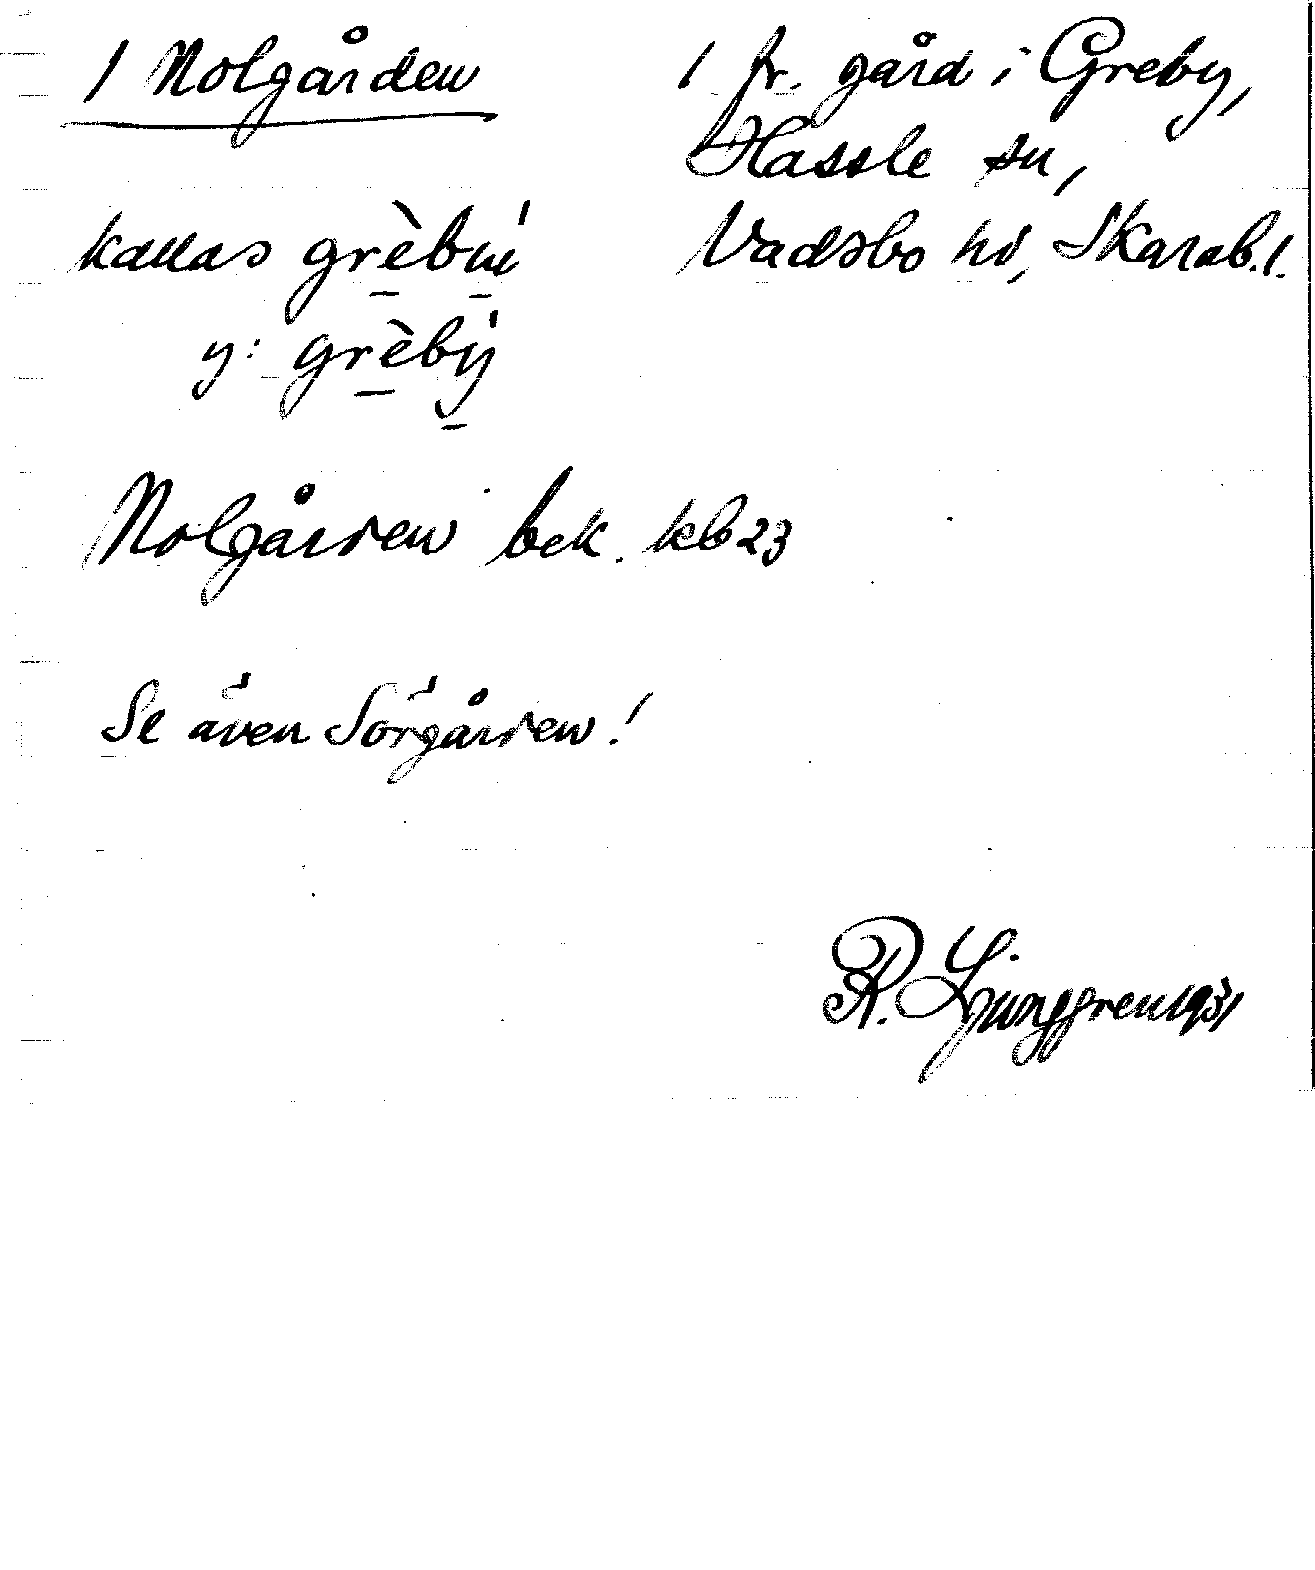 / Nolgården
/ fr. gård i Greby,
Hassle sn,
Vadsbo hd, Skarab. l.
kallas
y: grèbý
Nolgården bek. kb 23
Se även Sörgården!
R. Ljunggren 1931